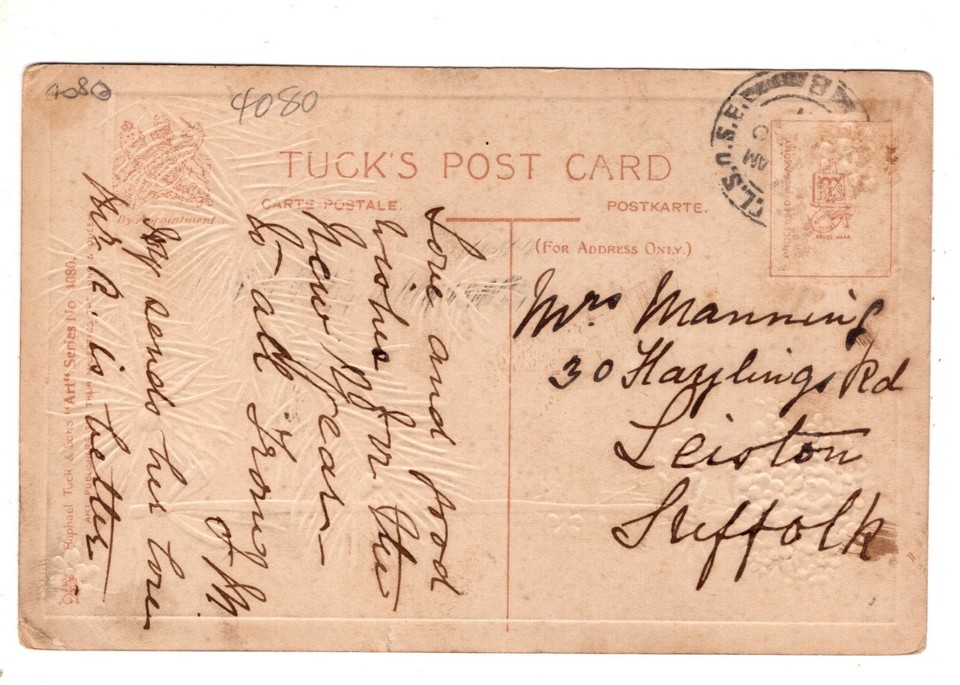 4080
4080
TUCK'S POST CARD
CARTE POSTALE.
POSTKARTE.
(FOR ADDRESS ONLY.)
By Appointment
Raphael Tuck & Sons "Art" Series No. 4080.
L.S.O.S.E.D
AM
Mrs Manning
30 Haylings Rd
Leiston
Suffolk
Love and good
wishes for the
New Year
to all from
sends her love
Mr R. is better